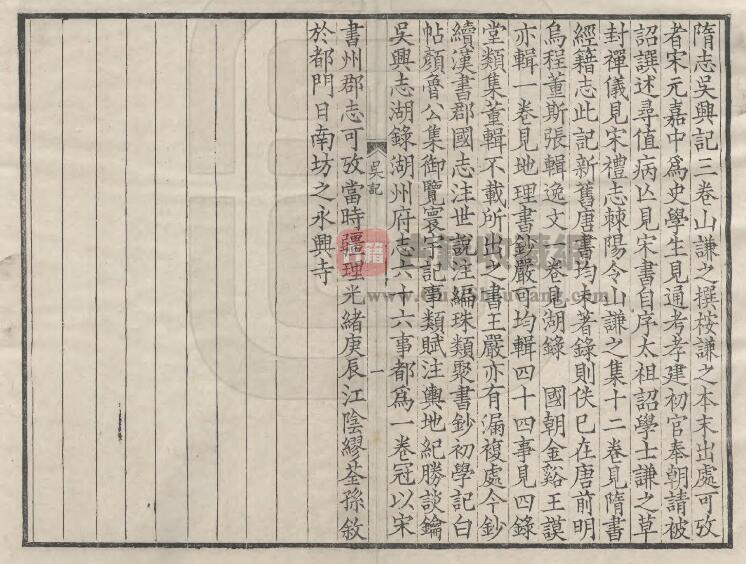 隋志吳興記三卷山謙之撰桉謙之本末出處可攷
者宋元嘉中爲史學生見通考孝建初官奉朝請被
詔譔述尋值病亾見宋書自序太祖詔學士謙之草
封禪儀見宋禮志棘陽令山謙之集十二卷見隋書
經籍志此記新舊唐書均未著錄則佚已在唐前明
烏程董斯張輯逸文一卷見湖錄　國朝金谿王謨
亦輯一卷見地理書鈔嚴可均輯四十四事見四錄
堂類集董輯不載所出之書王嚴亦有漏複處今鈔
續漢書郡國志注世說注編珠類聚書鈔初學記白
帖顏魯公集御覽寰宇記事類賦注輿地紀勝談鑰
吳興志湖錄湖州府志六十六事都爲一卷冠以宋
吳記
一
書州郡志可攷當時疆理光緒庚辰江陰繆荃孫敘
於都門日南坊之永興寺
古籍